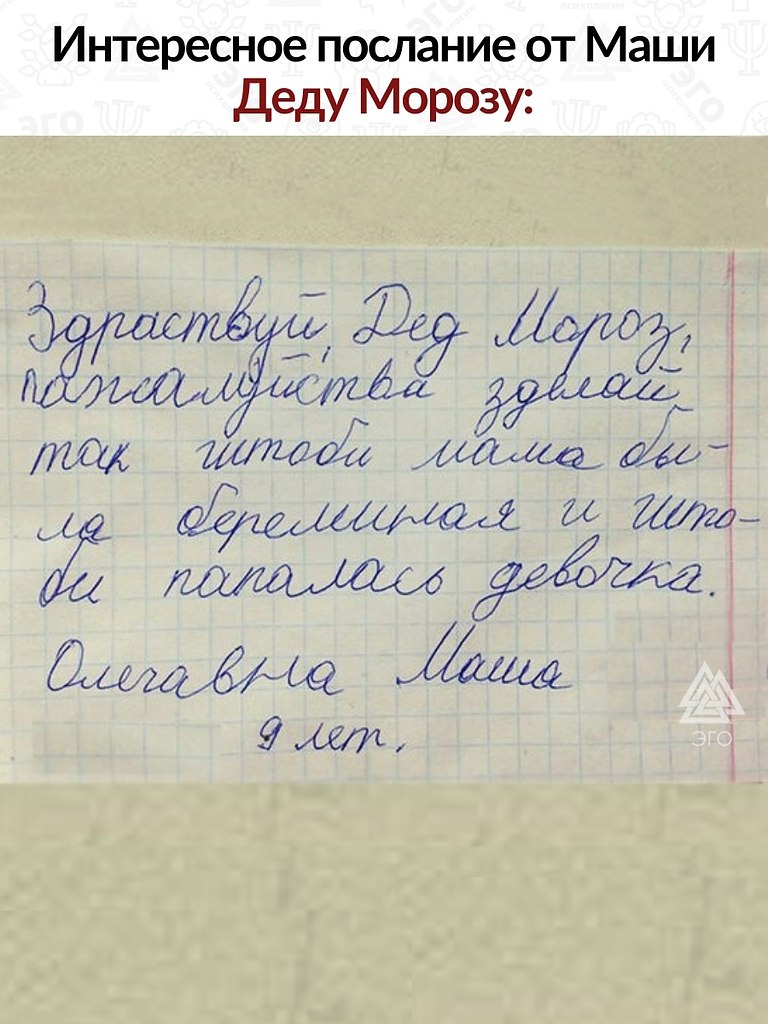 Интересное послание от Маши
Деду Морозу:
Здраствуй, Дед Мороз,
пажалуйства зделай
так штоби мама бы-
ла береминая и што-
би папалась девочка.
Олегавна Маша
9 лет.
ЭГО